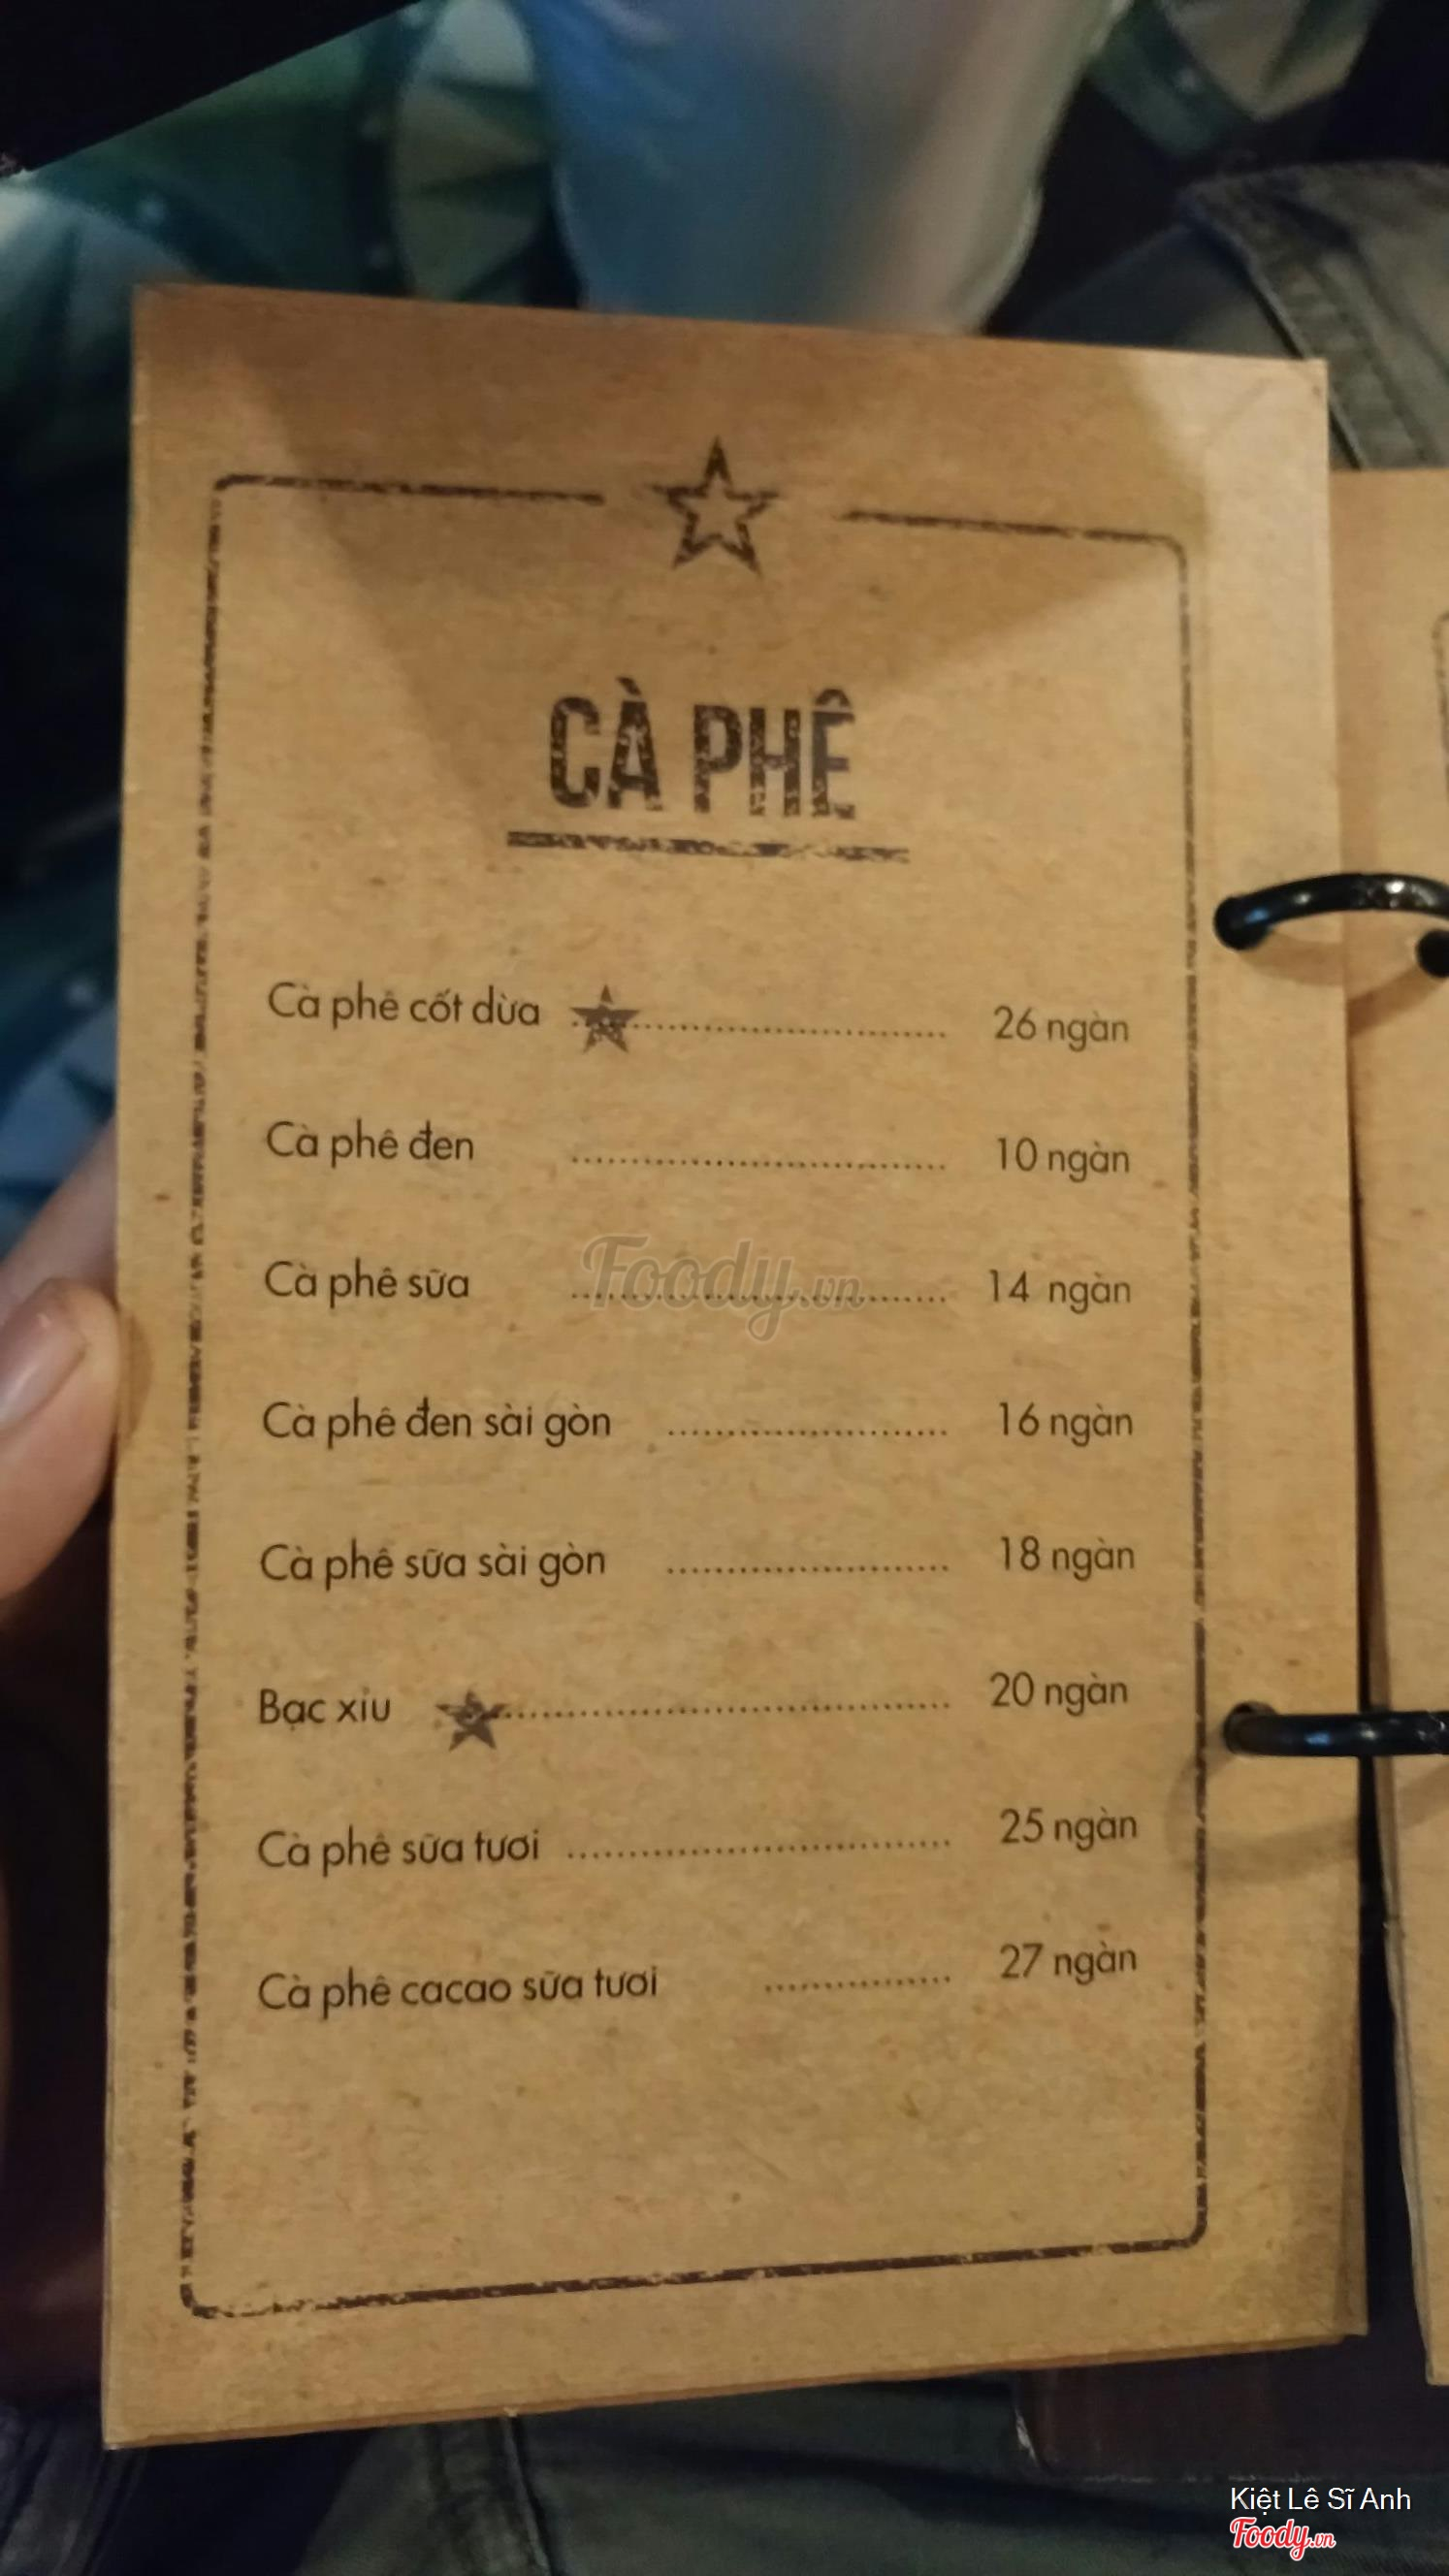 CÀ PHÊ
Cà phê cốt dừa ........................ 26 ngàn
Cà phê đen ........................ 10 ngàn
Cà phê sữa ........................ 14 ngàn
Foody.vn
Cà phê đen sài gòn ........................ 16 ngàn
Cà phê sữa sài gòn ........................ 18 ngàn
Bạc xỉu ........................ 20 ngàn
Cà phê sữa tươi ........................ 25 ngàn
Cà phê cacao sữa tươi ................ 27 ngàn
Kiệt Lê Sĩ Anh
Foody.vn